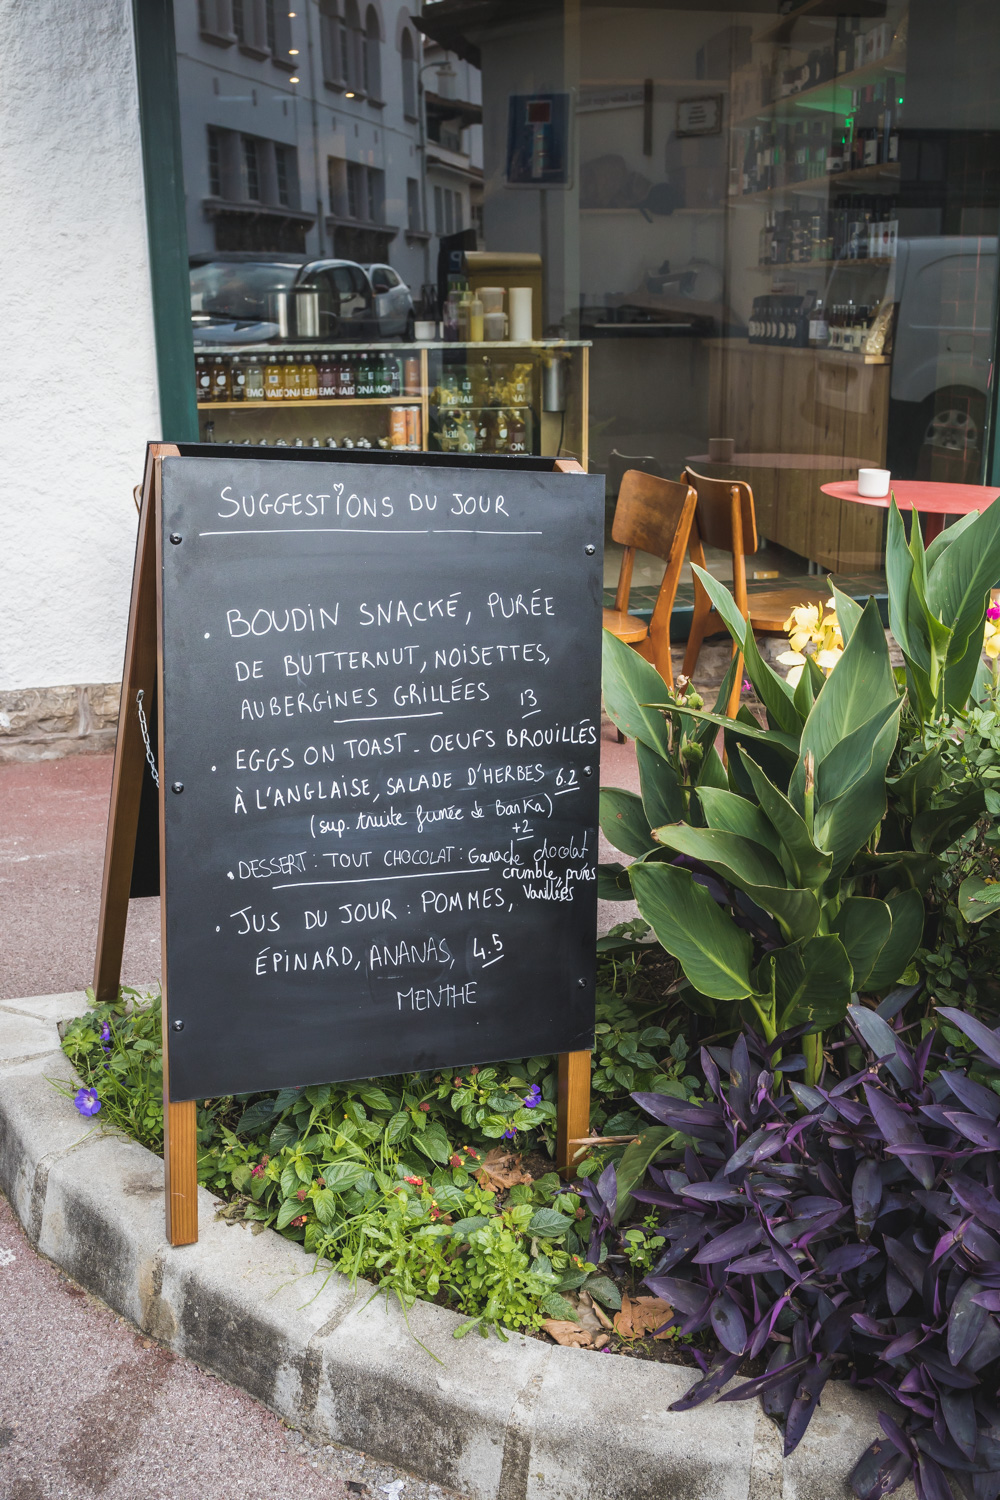 SUGGESTIONS DU JOUR
. BOUDIN SNACKÉ, PURÉE
DE BUTTERNUT, NOISETTES,
AUBERGINES GRILLÉES 13
. EGGS ON TOAST - OEUFS BROUILLÉS
À L'ANGLAISE, SALADE D'HERBES 6.2
(sup. truite fumée de Banka)
+2
. DESSERT : TOUT CHOCOLAT : Ganache chocolat
crumble, poires
Vanillées
. JUS DU JOUR : POMMES,
ÉPINARD, ANANAS, 4.5
MENTHE